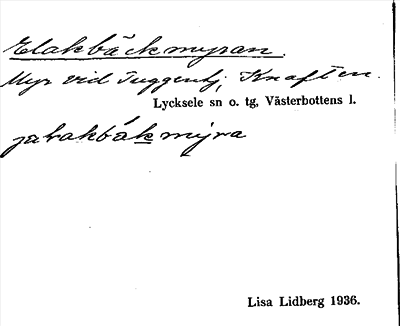 Elakbäckmyran.
Myr vid Tuggensj, Knaften.
Lycksele sn o. tg, Västerbottens l.
Lisa Lidberg 1936.